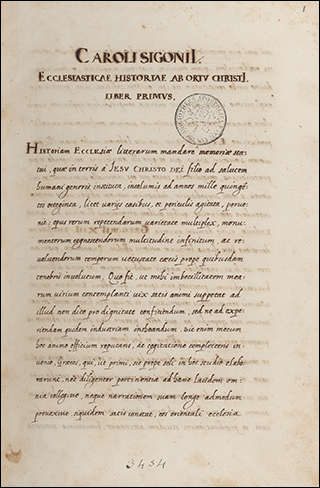 1
CAROLI SIGONII.
ECCLESIASTICAE HISTORIAE AB ORTV CHRISTI.
LIBER PRIMVS.
HISTORIAM ECCLESIÆ literarum mandare memoriæ sta-
tui, quæ in terris à IESV CHRISTO DEI filio ad salutem
humani generis instituta, incolumis ad annos mille quingē-
tos octoginta, licet varijs casibus, et periculis agitata, perve-
nit: opus rerum repetendarum varietate multiplex, monu-
mentorum cognoscendorum multitudine infinitum, ac re-
volvendorum temporum vetustate cæcis prope quibusdam
tenebris involutum. Quo fit, ut mihi imbecillitatem mea-
rum virium contemplanti vix satis animi suppetat ad
illud non dico pro dignitate conficiendum, sed ne ad expe-
riendam quidem industriam inchoandum. Sic enim mecum
hoc animo officium reputans, ac cogitatione complectens in-
venio, Græcos, qui, ut primi, sic prope soli in hoc studio elabo-
rarunt, nec diligenter pertinentia ad hanc laudem om-
nia collegisse, neque narrationem suam longe admodum
provexisse siquidem satis constat, eos orientalis ecclesiæ
3434